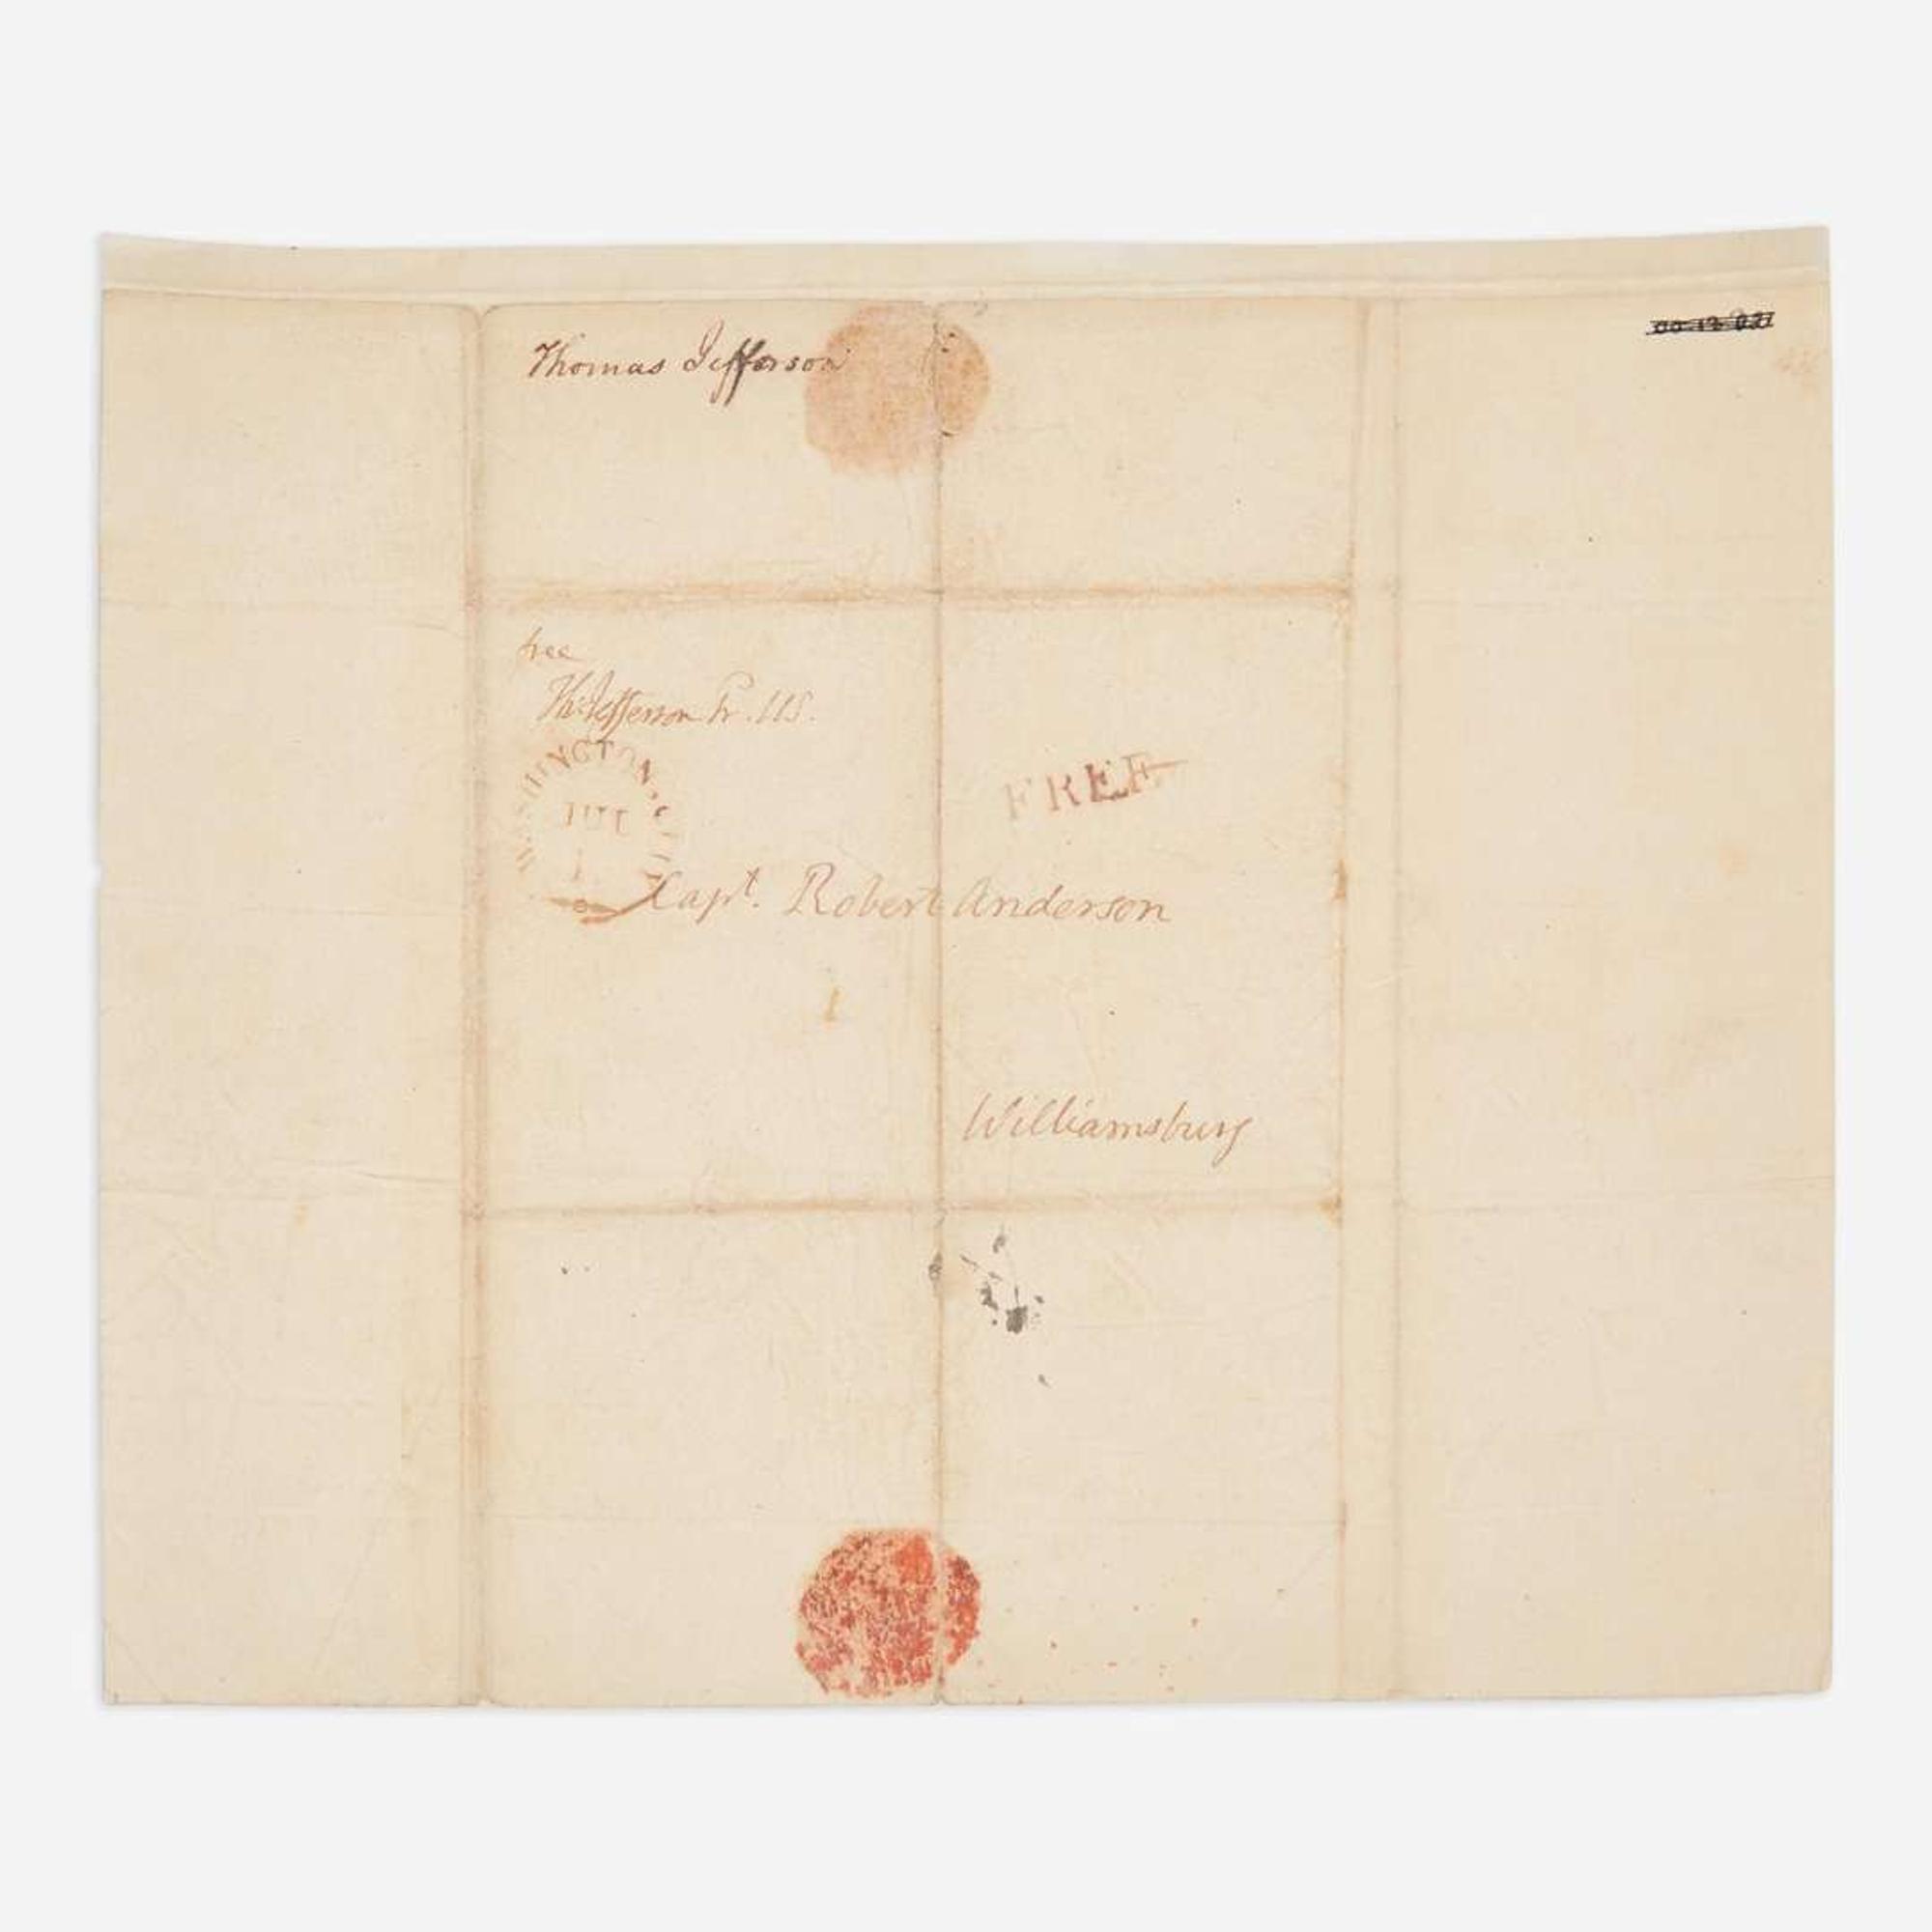 Thomas Jefferson
free
Th: Jefferson Pr. US.
WASHINGTON. CITY
JUL
FREE
Capt. Robert Anderson
Williamsburg